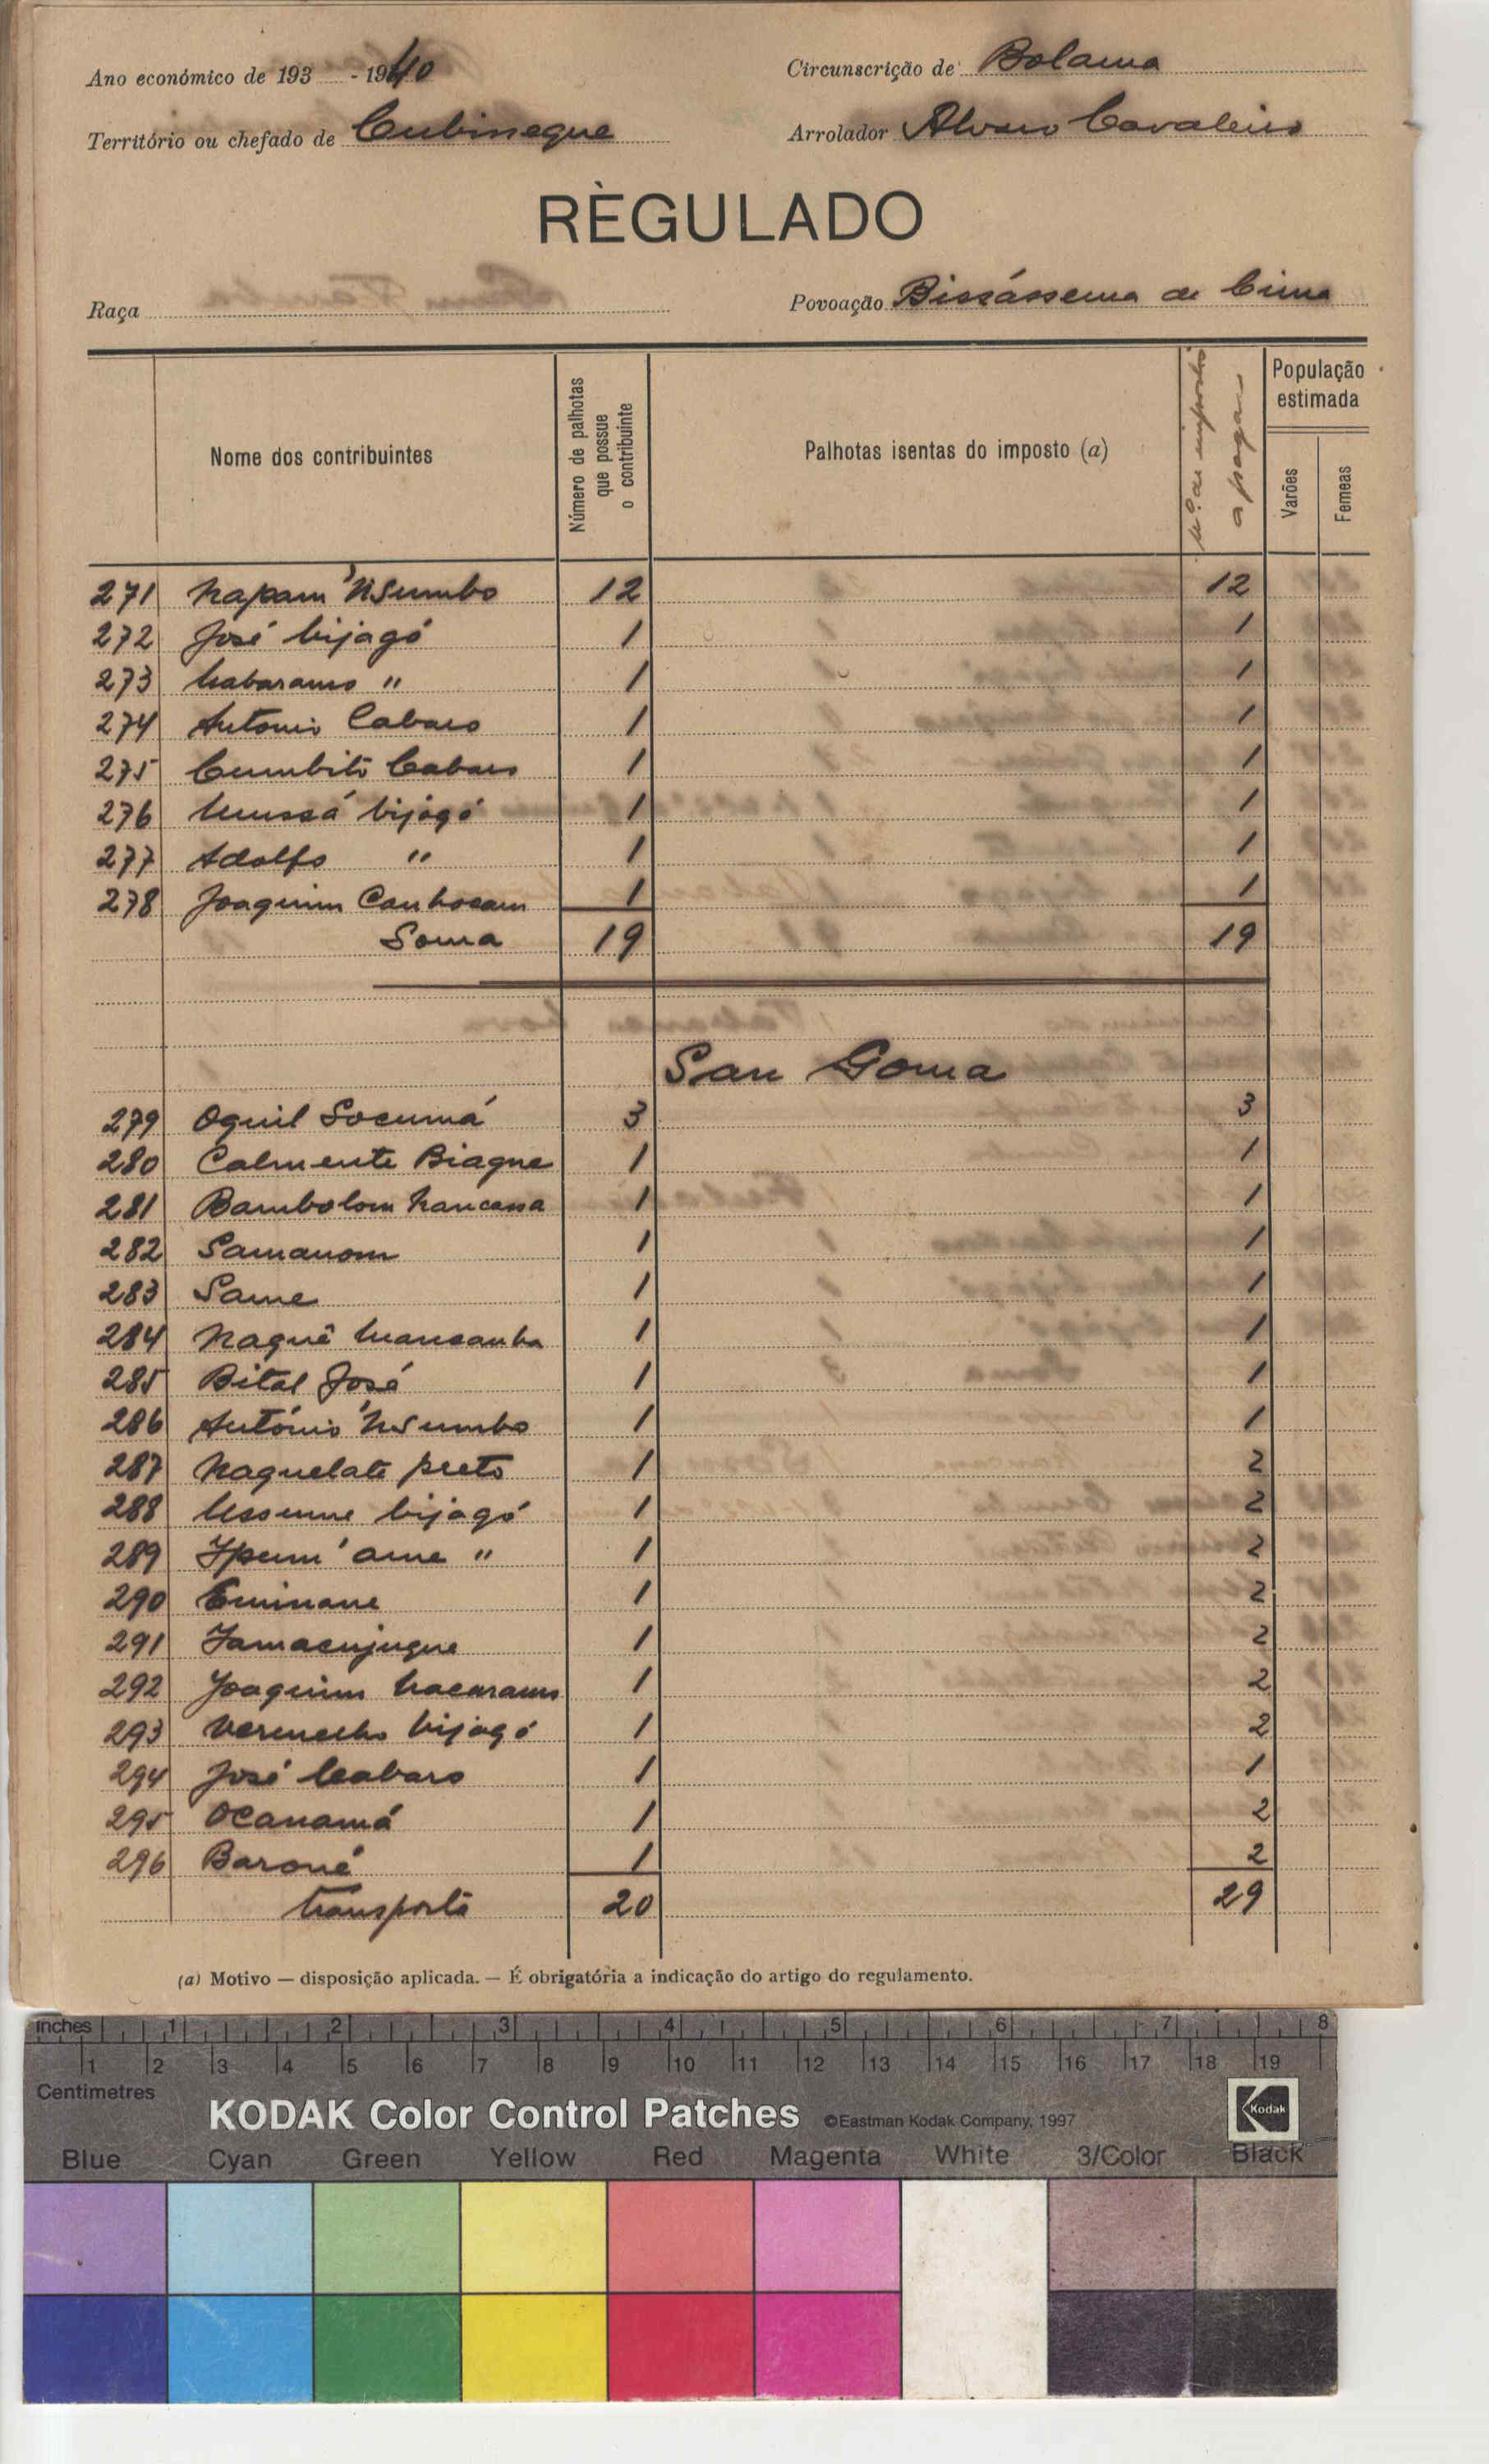 Ano económico de 193 - 1940
Circunscrição de Bolama
Território ou chefado de Cubisseque
Arrolador Alvaro Cavaleiro
RÈGULADO
Raça
Povoação Bissássema de Cima
Nome dos contribuintes
Número de palhotas que possue o contribuinte
Palhotas isentas do imposto (a)
N.º de impostos a pagar
População estimada
Varões
Femeas
271 Napam 'Nsumbo 12 12
272 José bijagó 1 1
273 " 1 1
274 Antonio Cabaro 1 1
275 Cumbiti Cabaro 1 1
276 Mussá bijagó 1 1
277 Adolfo " 1 1
278 Joaquim Canhocam 1 1
Soma 19 19
San Goma
279 Oquil Socumá 3 3
280 Calmente Biague 1 1
281 Bambolom Nancassa 1 1
282 Samanom 1 1
283 Same 1 1
284 Naquê Mansanha 1 1
285 Bital José 1 1
286 António 'Nsumbo 1 1
287 Naquelate preto 1 2
288 Ussumne bijagó 1 2
289 Ipum' ame " 1 2
290 Eminane 1 2
291 Jamacujugue 1 2
292 Joaquim 1 2
293 Vermelho bijagó 1 2
294 José Cabaro 1 1
295 Ocanamá 1 2
296 Baroné 1 2
transporte 20 29
(a) Motivo — disposição aplicada. — É obrigatória a indicação do artigo do regulamento.
inches 1 2 3 4 5 6 7 8
1 2 3 4 5 6 7 8 9 10 11 12 13 14 15 16 17 18 19
Centimetres
KODAK Color Control Patches ©Eastman Kodak Company, 1997 Kodak
Blue Cyan Green Yellow Red Magenta White 3/Color Black